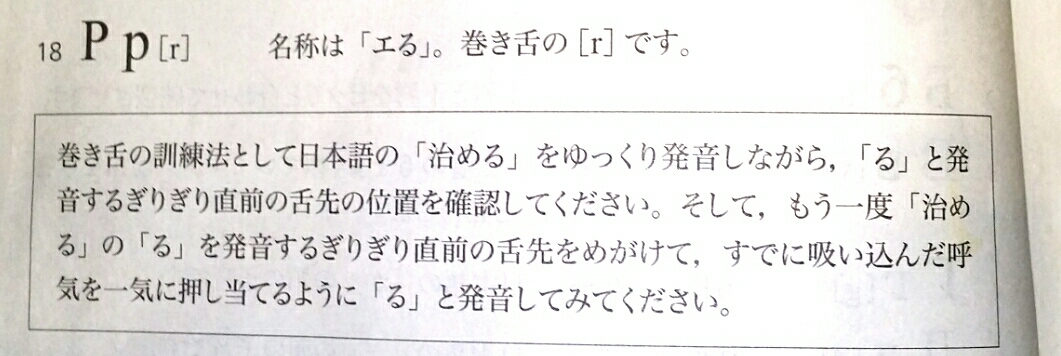 18 Р р [r] 名称は「エる」。巻き舌の [r] です。
巻き舌の訓練法として日本語の「治める」をゆっくり発音しながら,「る」と発
音するぎりぎり直前の舌先の位置を確認してください。そして, もう一度「治め
る」の「る」を発音するぎりぎり直前の舌先をめがけて, すでに吸い込んだ呼
気を一気に押し当てるように「る」と発音してみてください。